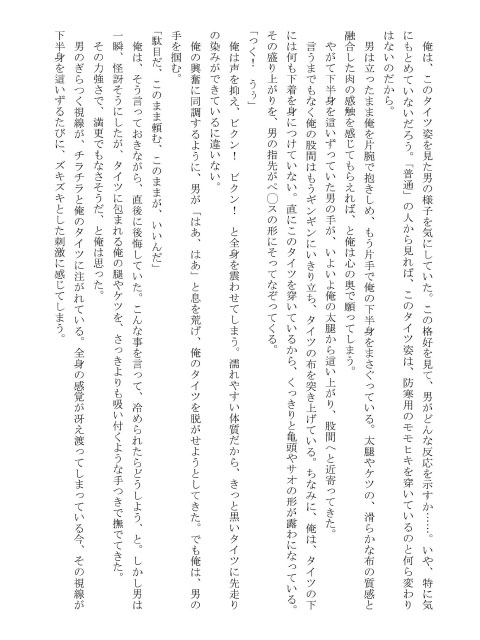 俺は、このタイツ姿を見た男の様子を気にしていた。この格好を見て、男がどんな反応を示すか……。いや、特に気
にもとめていないだろう。「普通」の人から見れば、このタイツ姿は、防寒用のモモヒキを穿いているのと何ら変わり
はないのだから。
男は立ったまま俺を片腕で抱きしめ、もう片手で俺の下半身をまさぐっている。太腿やケツの、滑らかな布の質感と
融合した肉の感触を感じてもらえれば、と俺は心の奥で願ってしまう。
やがて下半身を這いずっていた男の手が、いよいよ俺の太腿から這い上がり、股間へと近寄ってきた。
言うまでもなく俺の股間はもうギンギンにいきり立ち、タイツの布を突き上げている。ちなみに、俺は、タイツの下
には何も下着を身につけていない。直にこのタイツを穿いているから、くっきりと亀頭やサオの形が露わになっている。
その盛り上がりを、男の指先がペ〇スの形にそってなぞってくる。
「つく！　うぅ」
俺は声を抑え、ビクン！　ビクン！　と全身を震わせてしまう。濡れやすい体質だから、きっと黒いタイツに先走り
の染みができているに違いない。
俺の興奮に同調するように、男が「はあ、はあ」と息を荒げ、俺のタイツを脱がせようとしてきた。でも俺は、男の
手を掴む。
「駄目だ、このまま頼む、このままが、いいんだ」
俺は、そう言っておきながら、直後に後悔していた。こんな事を言って、冷められたらどうしよう、と。しかし男は
一瞬、怪訝そうにしたが、タイツに包まれる俺の腿やケツを、さっきよりも吸い付くような手つきで撫でてきた。
その力強さで、満更でもなさそうだ、と俺は思った。
男のぎらつく視線が、チラチラと俺のタイツに注がれている。全身の感覚が冴え渡ってしまっている今、その視線が
下半身を這いずるたびに、ズキズキとした刺激に感じてしまう。